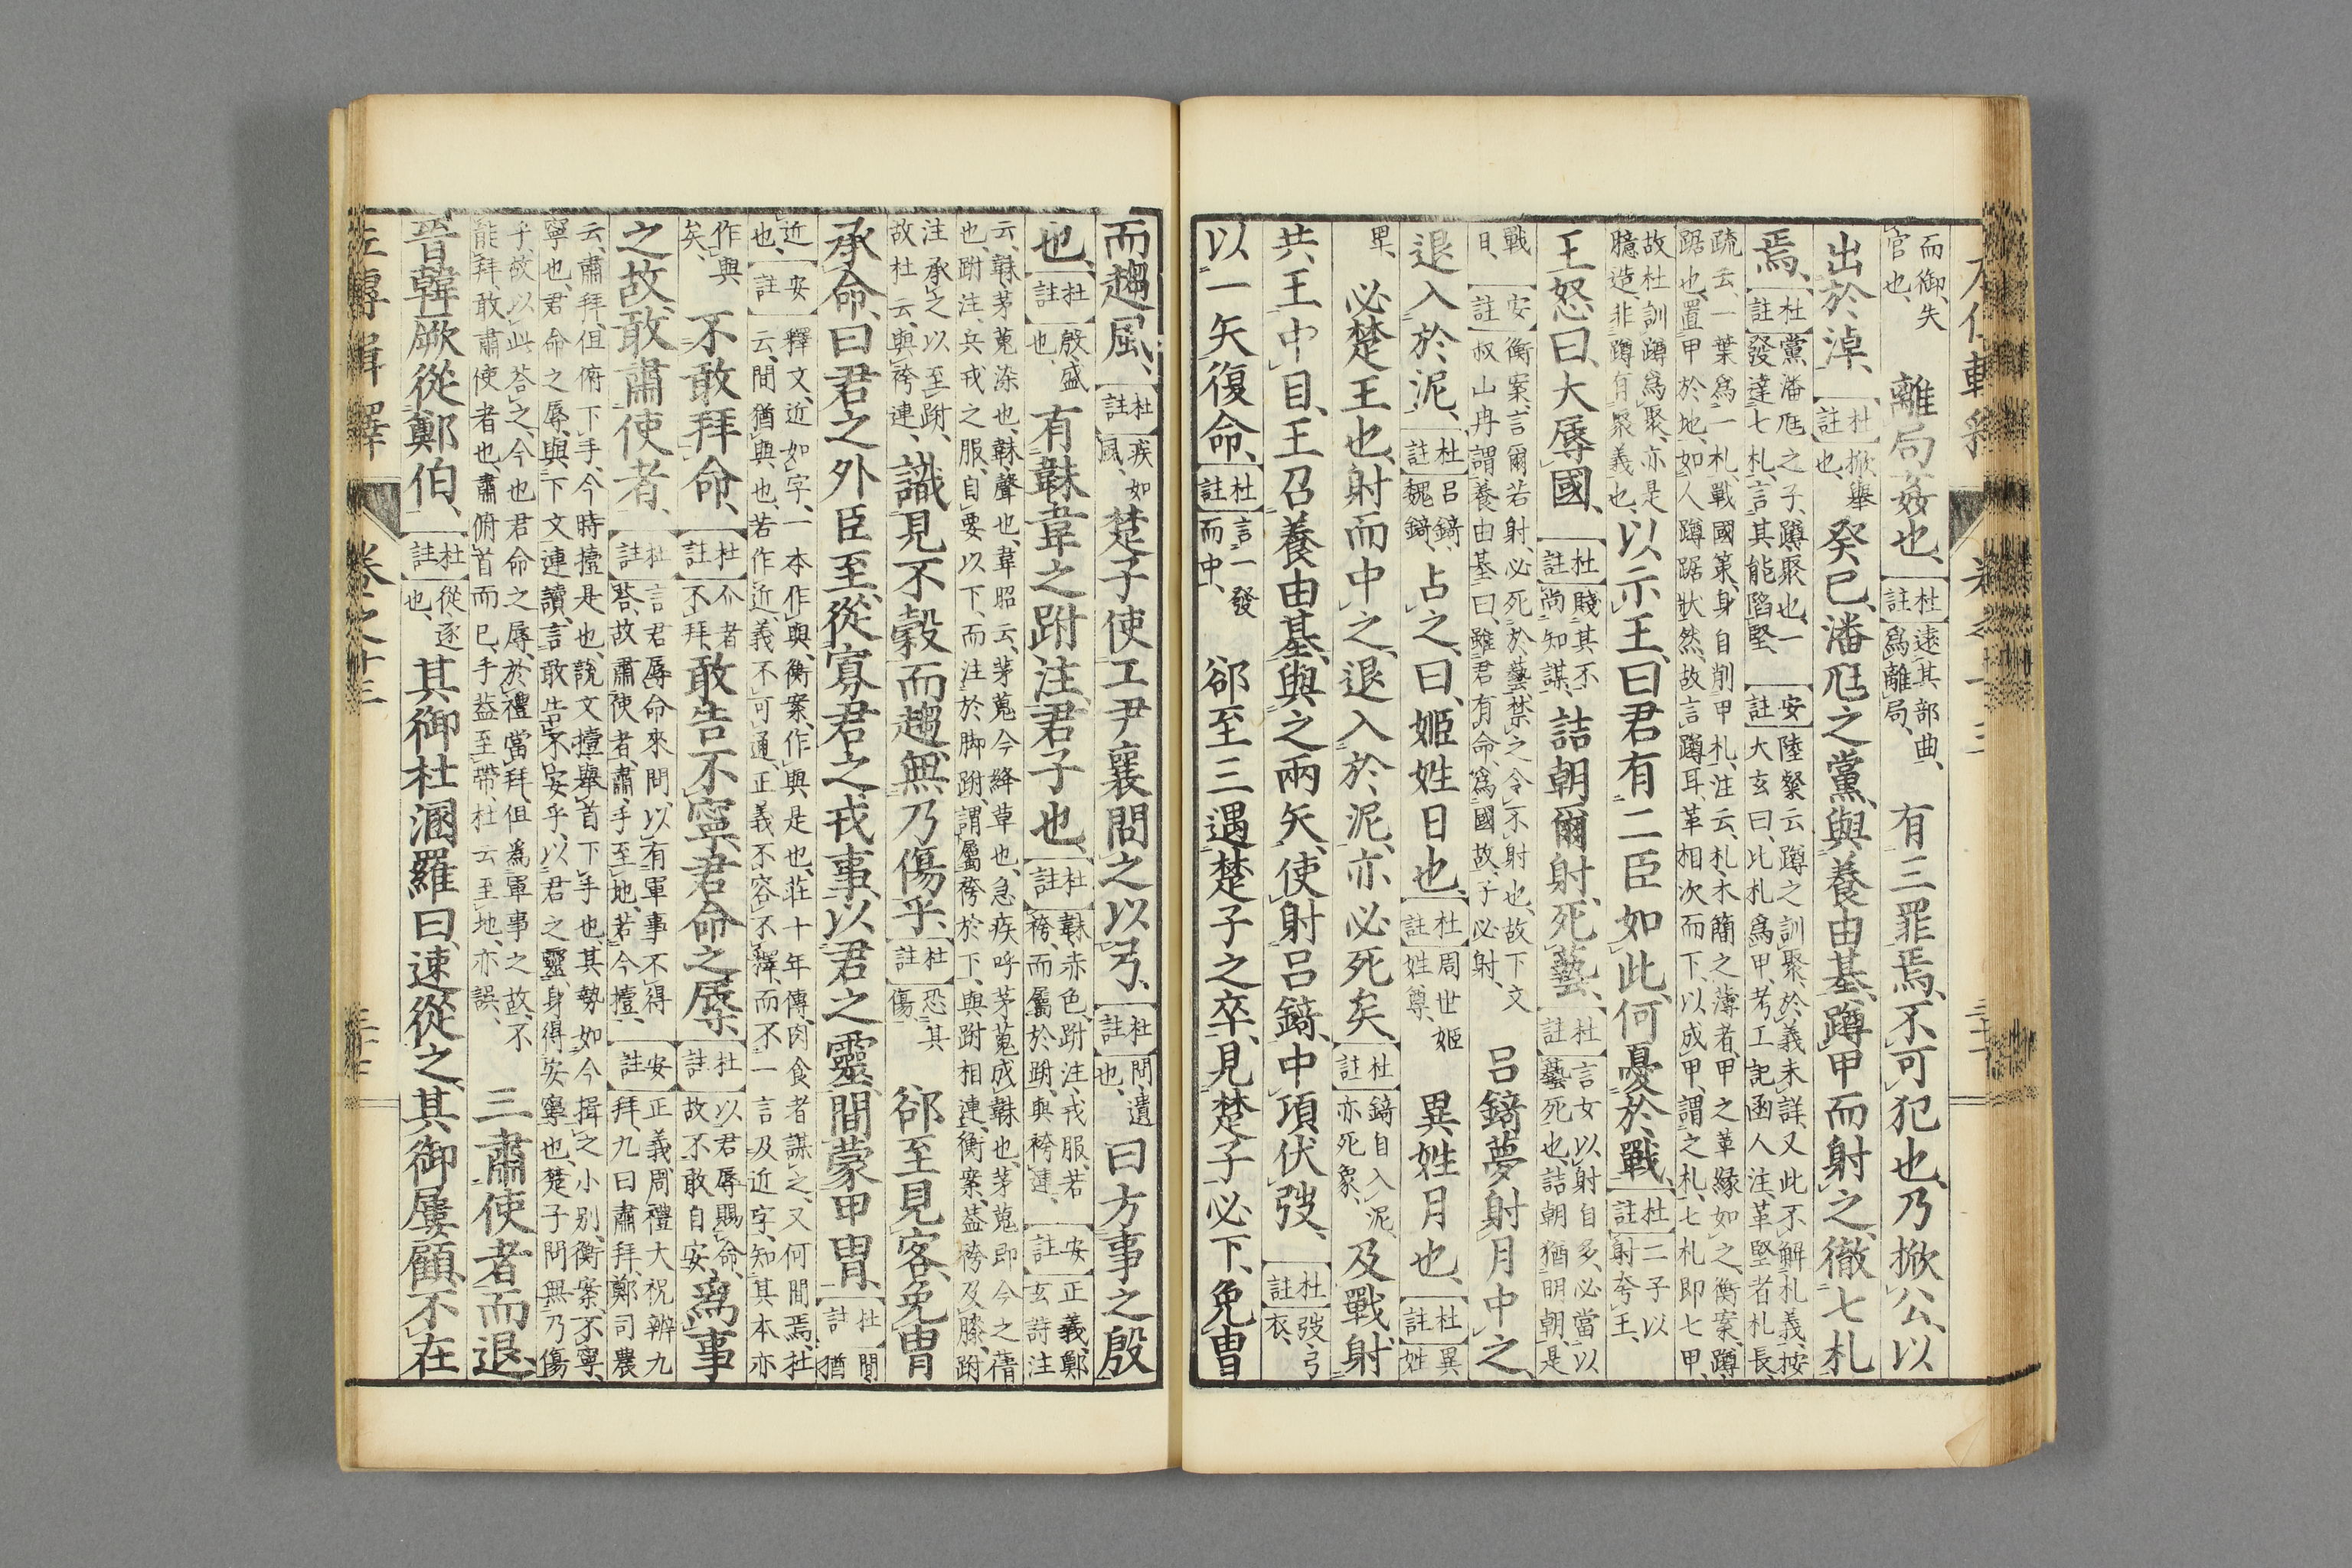 而御、失官也、離局姦也、杜註遠其部曲、爲離局、有三罪焉、不可犯也、乃掀公、以
出於淖、杜註掀、舉也、癸巳、潘尫之黨、與養由基、蹲甲而射之、徹七札
焉、杜註黨潘尫之子、蹲聚也、一發達七札、言其能陷堅、安註陸粲云、蹲之訓聚、於義未詳、又此不解札義、按大玄曰、比札爲甲、考工記函人注、革堅者札長、
疏云、一葉爲一札、戰國策、身自削甲札、注云、札、木簡之薄者、甲之革緣如之、衡案、蹲踞也、置甲於地、如人蹲踞狀然、故言蹲耳、革相次而下、以成甲、謂之札、七札即七甲、
故杜訓蹲爲聚、亦是臆造、非蹲有聚義也、以示王、曰君有二臣如此、何憂於戰、杜註二子以射夸王、
王怒曰、大辱國、杜註賤其不尚知謀、詰朝爾射、死藝、杜註言女以射自多、必當以藝死也、詰朝猶明朝、是
戰日、安註衡案、言爾若射、必死於藝、禁之令不射也、故下文叔山冉謂養由基曰、雖君有命、爲國故、子必射、呂錡夢射月中之、
退入於泥、杜註呂錡、魏錡、占之、曰、姬姓日也、杜註周世姬姓尊、異姓月也、杜註異姓
卑、必楚王也、射而中之、退入於泥、亦必死矣、杜註錡自入泥亦死象、及戰、射
共王、中目、王召養由基、與之兩矢、使射呂錡、中項伏弢、杜註弢、弓衣、
以一矢復命、杜註言一發而中、郤至三遇楚子之卒、見楚子必下、免冑
而趨風、杜註疾如風、楚子使工尹襄問之以弓、杜註問遺也、曰方事之殷
也、杜註殷、盛也、有韎韋之跗注、君子也、杜註韎、赤色、跗注、戎服、若袴、而屬於跗、與袴連、安註正義、鄭玄詩注
云、韎、茅蒐染也、韎聲也、韋昭云、茅蒐今絳草也、急疾呼茅蒐成韎也、茅蒐即今之蒨也、跗注、兵戎之服、自要以下、而注於脚跗、謂屬袴於下、與跗相連、衡案、蓋袴及膝、跗
注承之以至跗、故杜云、與袴連、識見不穀而趨、無乃傷乎、杜註恐其傷、郤至見客、免冑
承命、曰君之外臣至、從寡君之戎事、以君之靈、間蒙甲冑、杜註間猶
近也、安註釋文、近如字、一本作與、衡案、作與是也、莊十年傳、肉食者謀之、又何間焉、杜云、間猶與也、若作近、義不可通、正義不容不釋、而不一言及近字、知其本亦
作與矣、不敢拜命、杜註介者不拜、敢告不寧、君命之辱、杜註以君辱賜命、故不敢自安、爲事
之故、敢肅使者、杜註言君辱命來問、以有軍事不得答、故肅使者、肅、手至地、若今撎、安註正義、周禮大祝辨九拜、九曰肅拜、鄭司農
云、肅拜、但俯下手、今時撎是也、說文、撎、舉首下手也、其勢如今揖之小別、衡案、不寧、寧也、君命之辱、與下文連讀、言敢告不安乎、以君之靈、身得安寧也、楚子問無乃傷
乎、故以此荅之、今也君命之辱、於禮當拜、但爲軍事之故、不能拜、敢肅使者也、肅俯首而已、手蓋至帶、杜云至地、亦誤、三肅使者而退、
晉韓厥從鄭伯、杜註從、逐也、其御杜溷羅曰、速從之、其御屢顧、不在
左傳輯釋 卷之十三